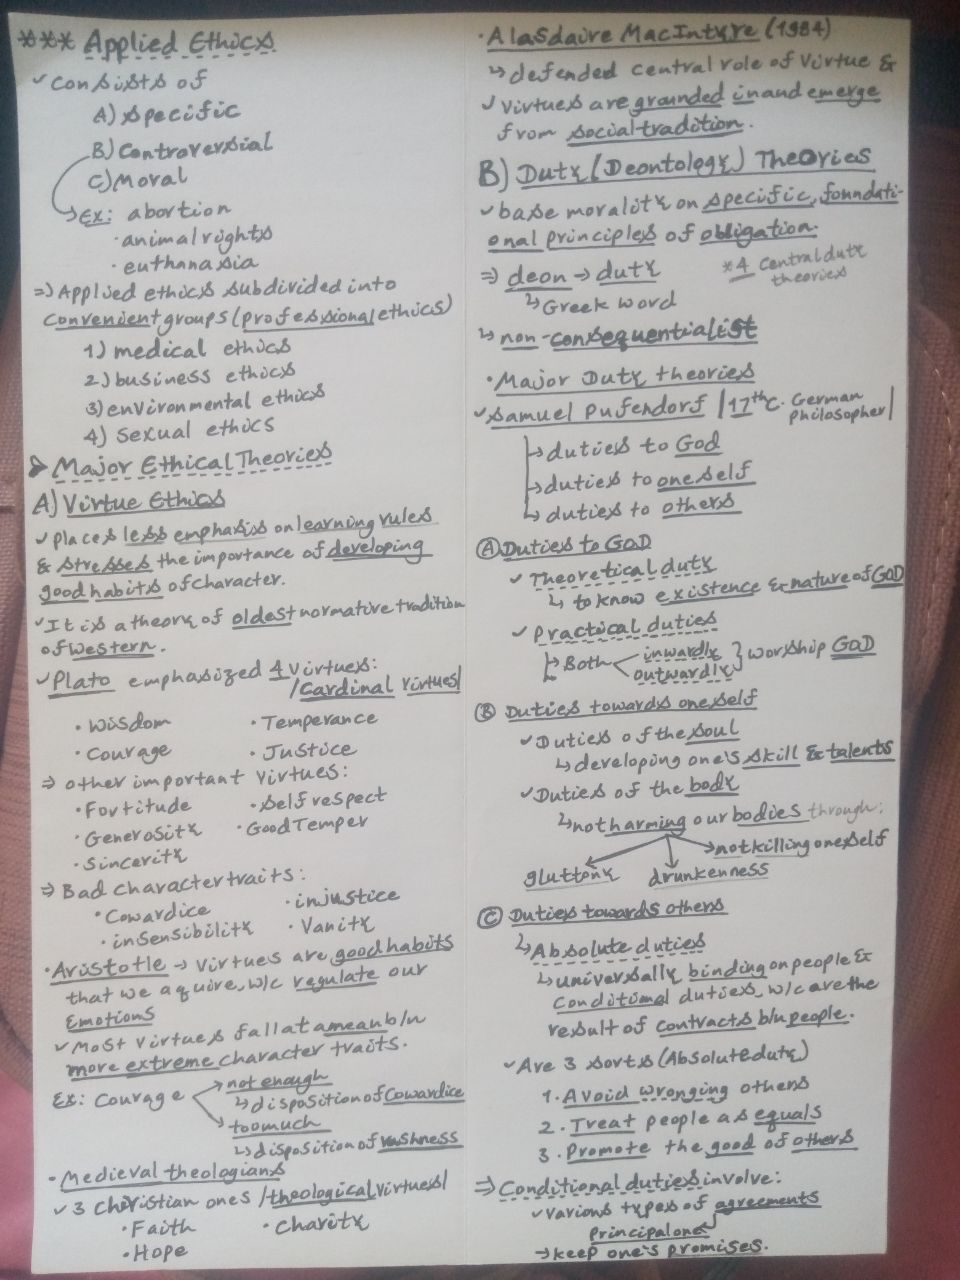 *** Applied Ethics
✓ Consists of
A) Specific
B) Controversial
C) Moral
→ Ex: abortion
· animal rights
· euthanasia
⇒ Applied ethics subdivided into
convenient groups (professional ethics)
1) medical ethics
2) business ethics
3) environmental ethics
4) sexual ethics
➤ Major Ethical Theories
A) Virtue Ethics
✓ places less emphasis on learning rules
& stresses the importance of developing
good habits of character.
✓ It is a theory of oldest normative tradition
of western.
✓ Plato emphasized 4 virtues:
/Cardinal virtues/
· Wisdom · Temperance
· Courage · Justice
⇒ other important virtues:
· Fortitude · Self respect
· Generosity · Good Temper
· Sincerity
⇒ Bad character traits:
· Cowardice · injustice
· insensibility · Vanity
· Aristotle → virtues are good habits
that we aquire, w/c regulate our
Emotions
✓ Most virtues fall at a mean b/n
more extreme character traits.
Ex: Courage → not enough
↳ disposition of cowardice
→ too much
↳ disposition of rashness
· Medieval theologians
✓ 3 Christian ones /theological virtues/
· Faith · Charity
· Hope
· Alasdaire MacIntyre (1984)
↳ defended central role of virtue &
✓ virtues are grounded in and emerge
from social tradition.
B) Duty (Deontology) Theories
✓ base morality on specific, foundati-
onal principles of obligation.
⇒ deon → duty
↳ Greek word
*4 central duty
theories
↳ non-consequentialist
· Major Duty theories
✓ Samuel Pufendorf |17th c. German
philosopher|
→ duties to God
→ duties to oneself
↳ duties to others
Ⓐ Duties to GOD
✓ Theoretical duty
↳ to know existence & nature of GOD
✓ Practical duties
↳ Both < inwardly
outwardly } worship GOD
Ⓑ Duties towards oneself
✓ Duties of the soul
↳ developing one's skill & talents
✓ Duties of the body
↳ not harming our bodies through:
→ not killing oneself
gluttony drunkenness
Ⓒ Duties towards others
↳ Absolute duties
↳ universally binding on people &
Conditional duties, w/c are the
result of contracts b/n people.
✓ Are 3 sorts (Absolute duty)
1. Avoid wronging others
2. Treat people as equals
3. Promote the good of others
⇒ Conditional duties involve:
✓ various types of agreements
Principal one
→ keep one's promises.